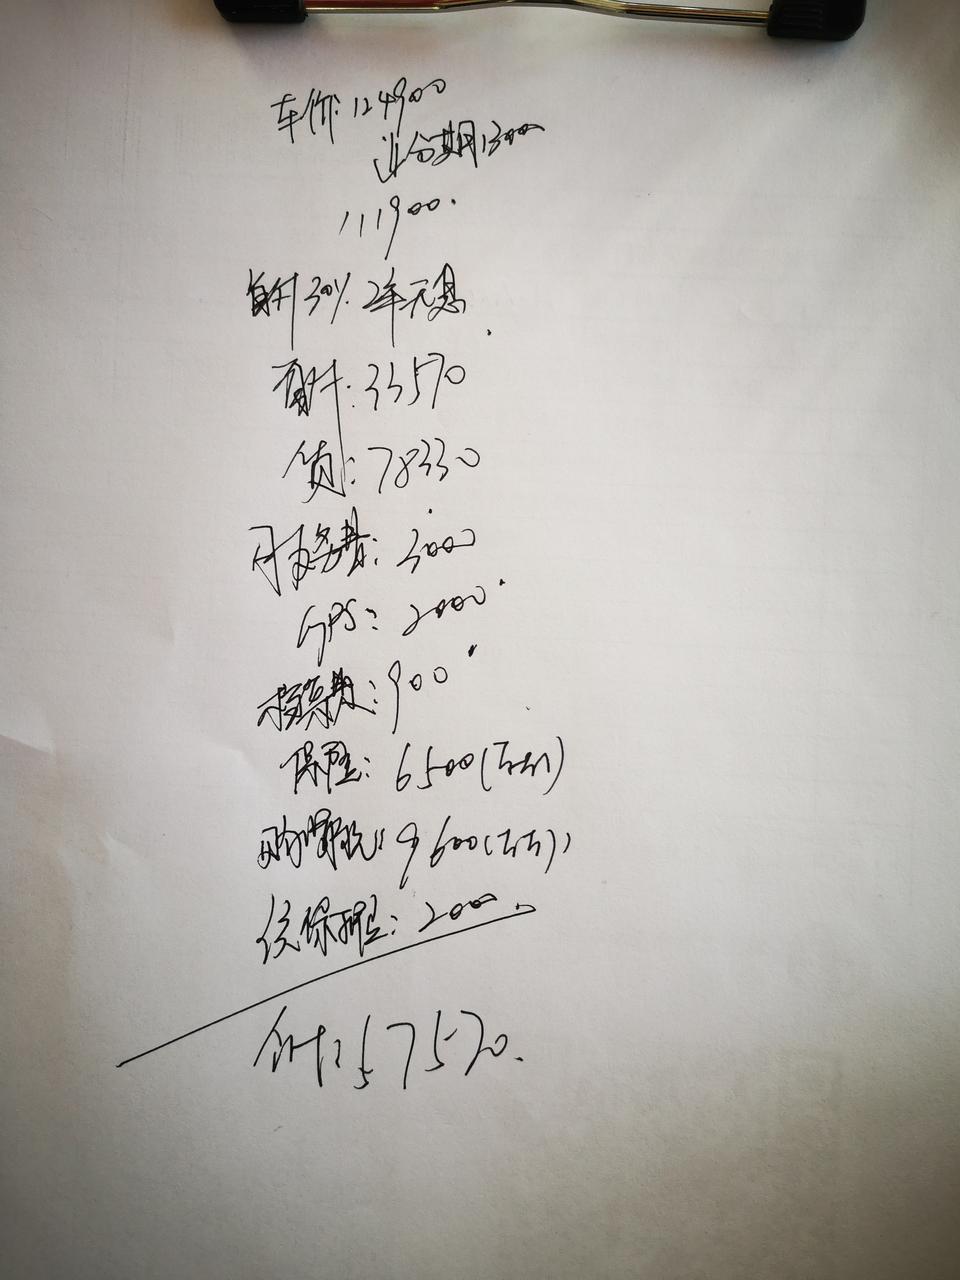 车价：124900
分期13000
111900.
首付30% 2年无息.
首付：33570
贷：78330
服务费：3000
GPS：2000
投保费：900
保险：6500(左右)
购置税：9600(左右)
续保押金：2000.
合计：57570.